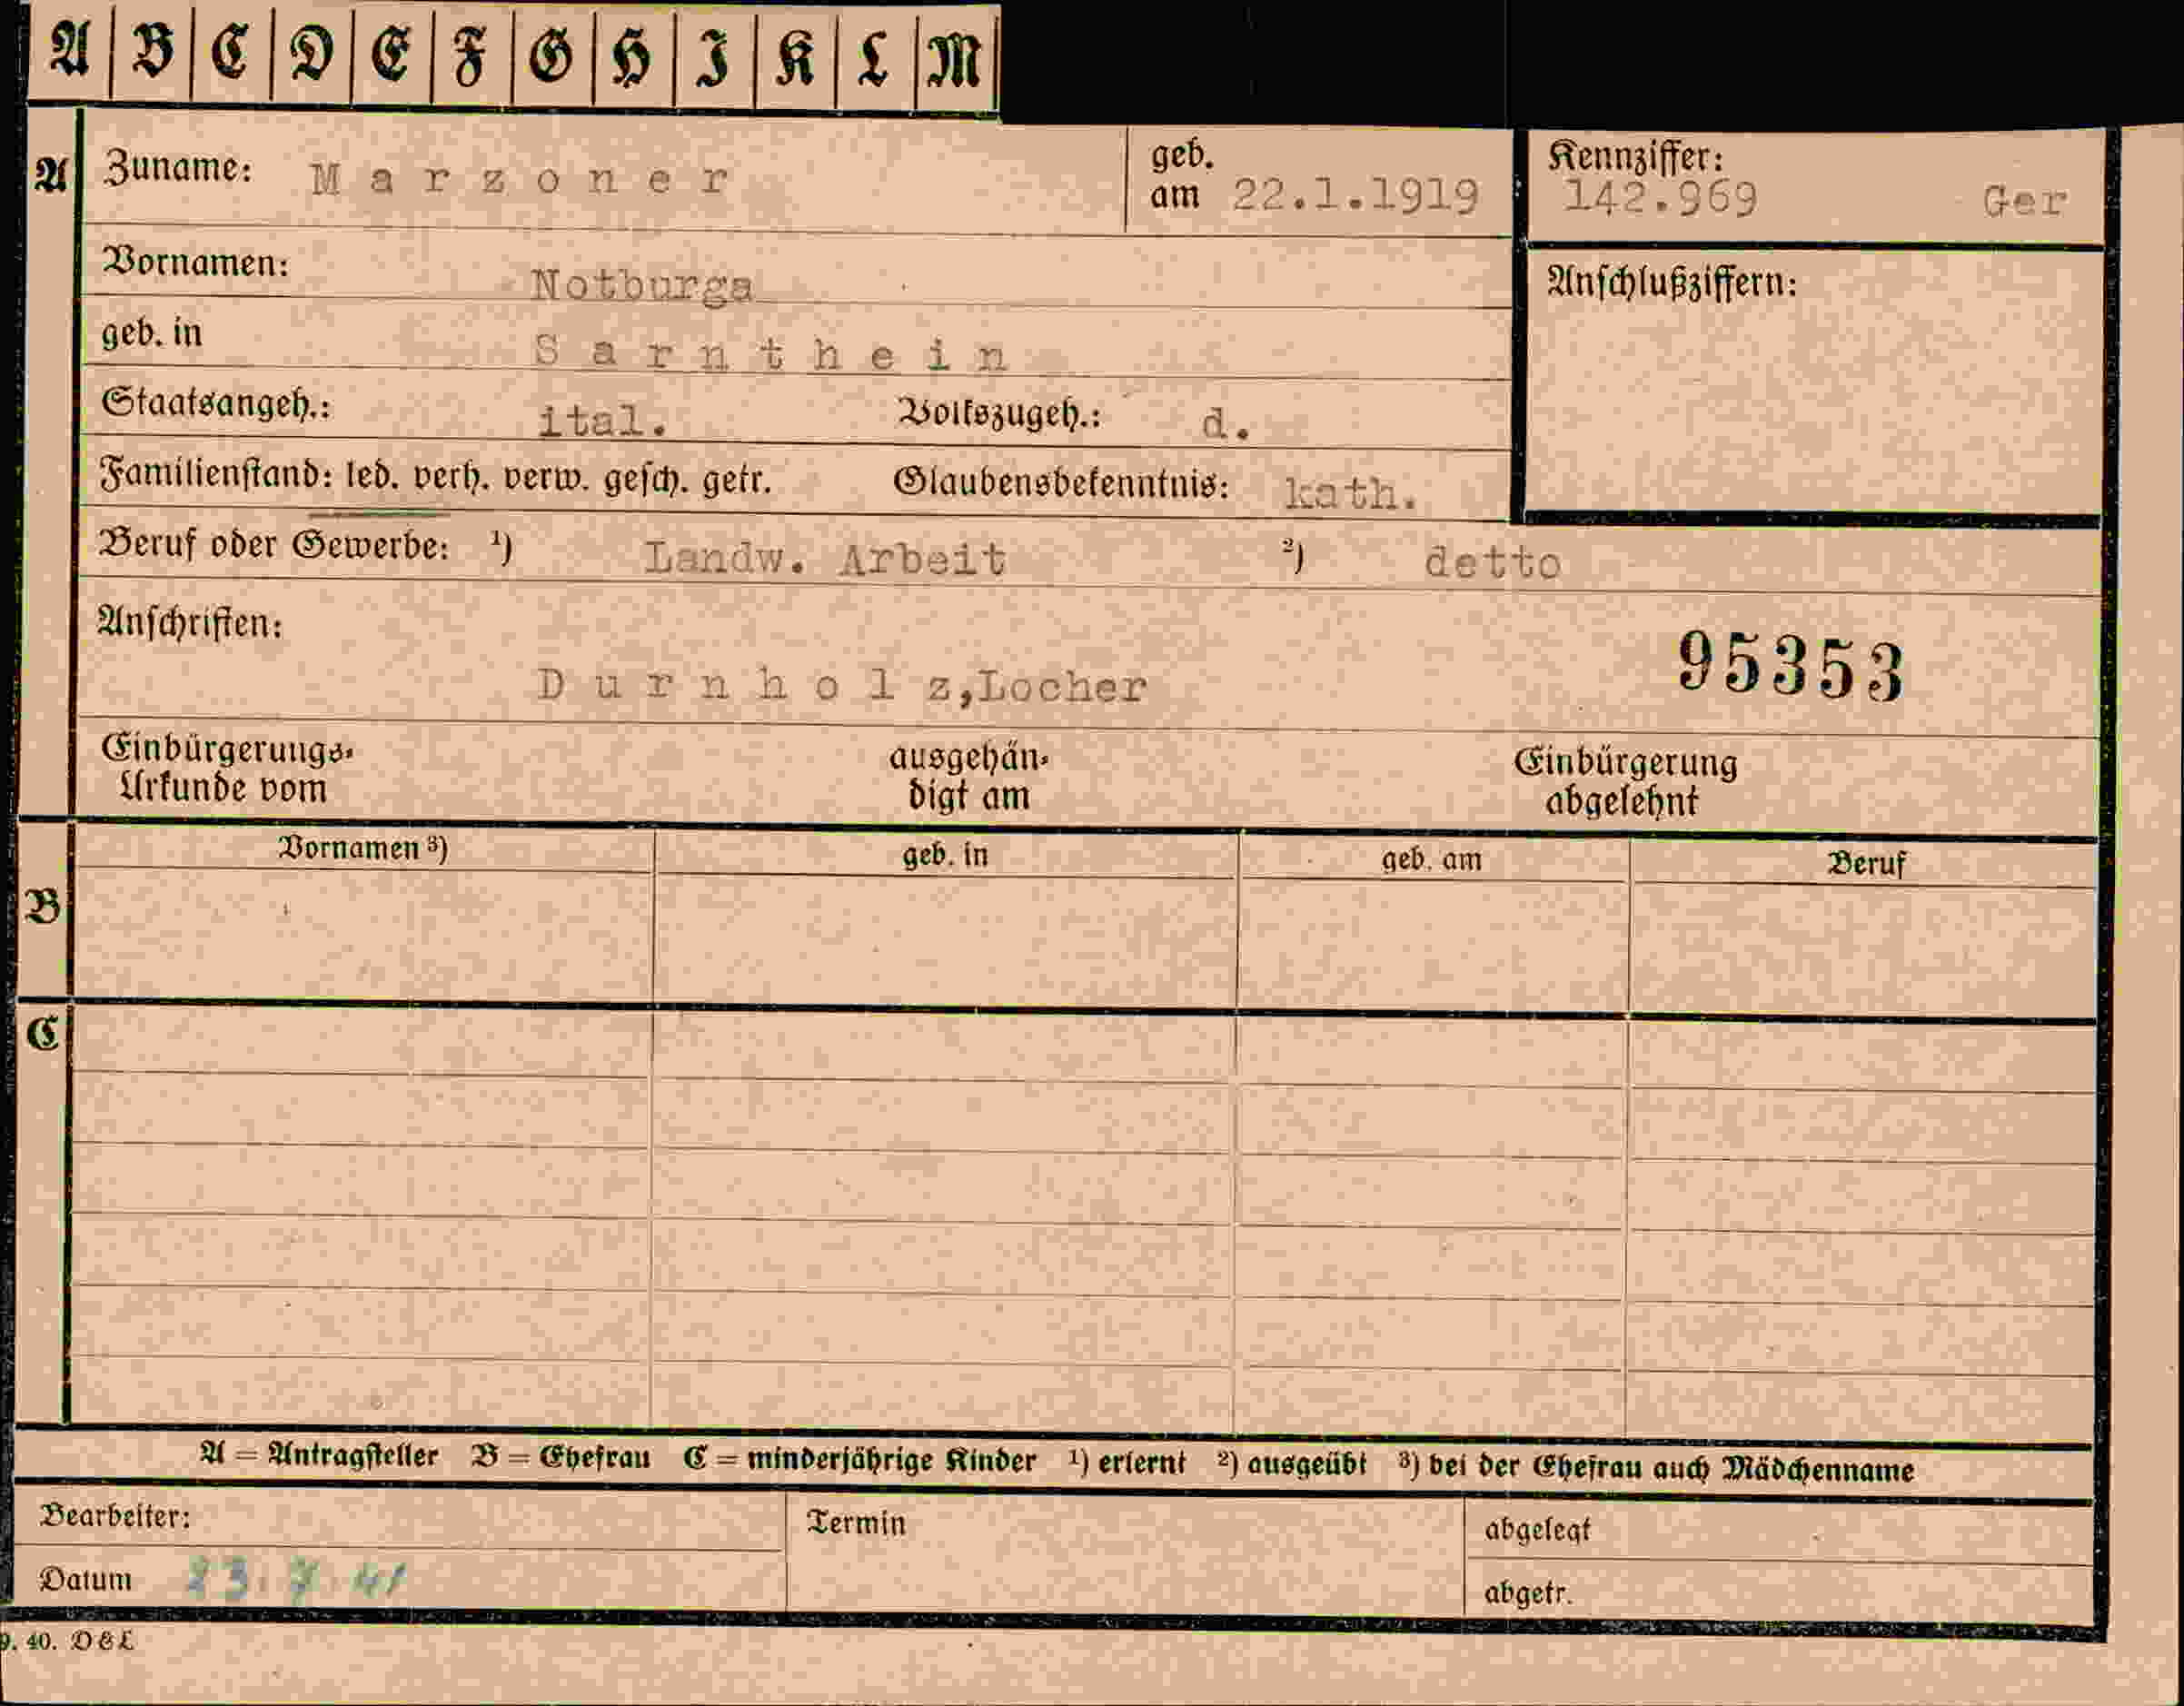 A B C D E F G H I K L M
A Zuname: Marzoner geb. am 22.1.1919 Kennziffer: 142.969 Ger
Vornamen: Notburga Anschlußziffern:
geb. in Sarnthein
Staatsangeh.: ital. Volkszugeh.: d.
Familienstand: led. verh. verw. gesch. getr. Glaubensbekenntnis: kath.
Beruf oder Gewerbe: 1) Landw. Arbeit 2) detto
Anschriften:
95353
Durnholz,Locher
Einbürgerungs- ausgehän- Einbürgerung
Urkunde vom digt am abgelehnt
Vornamen 3) geb. in geb. am Beruf
B
C
A = Antragsteller B = Ehefrau C = minderjährige Kinder 1) erlernt 2) ausgeübt 3) bei der Ehefrau auch Mädchenname
Bearbeiter: Termin abgelegt
Datum abgetr.
9. 40. D&L